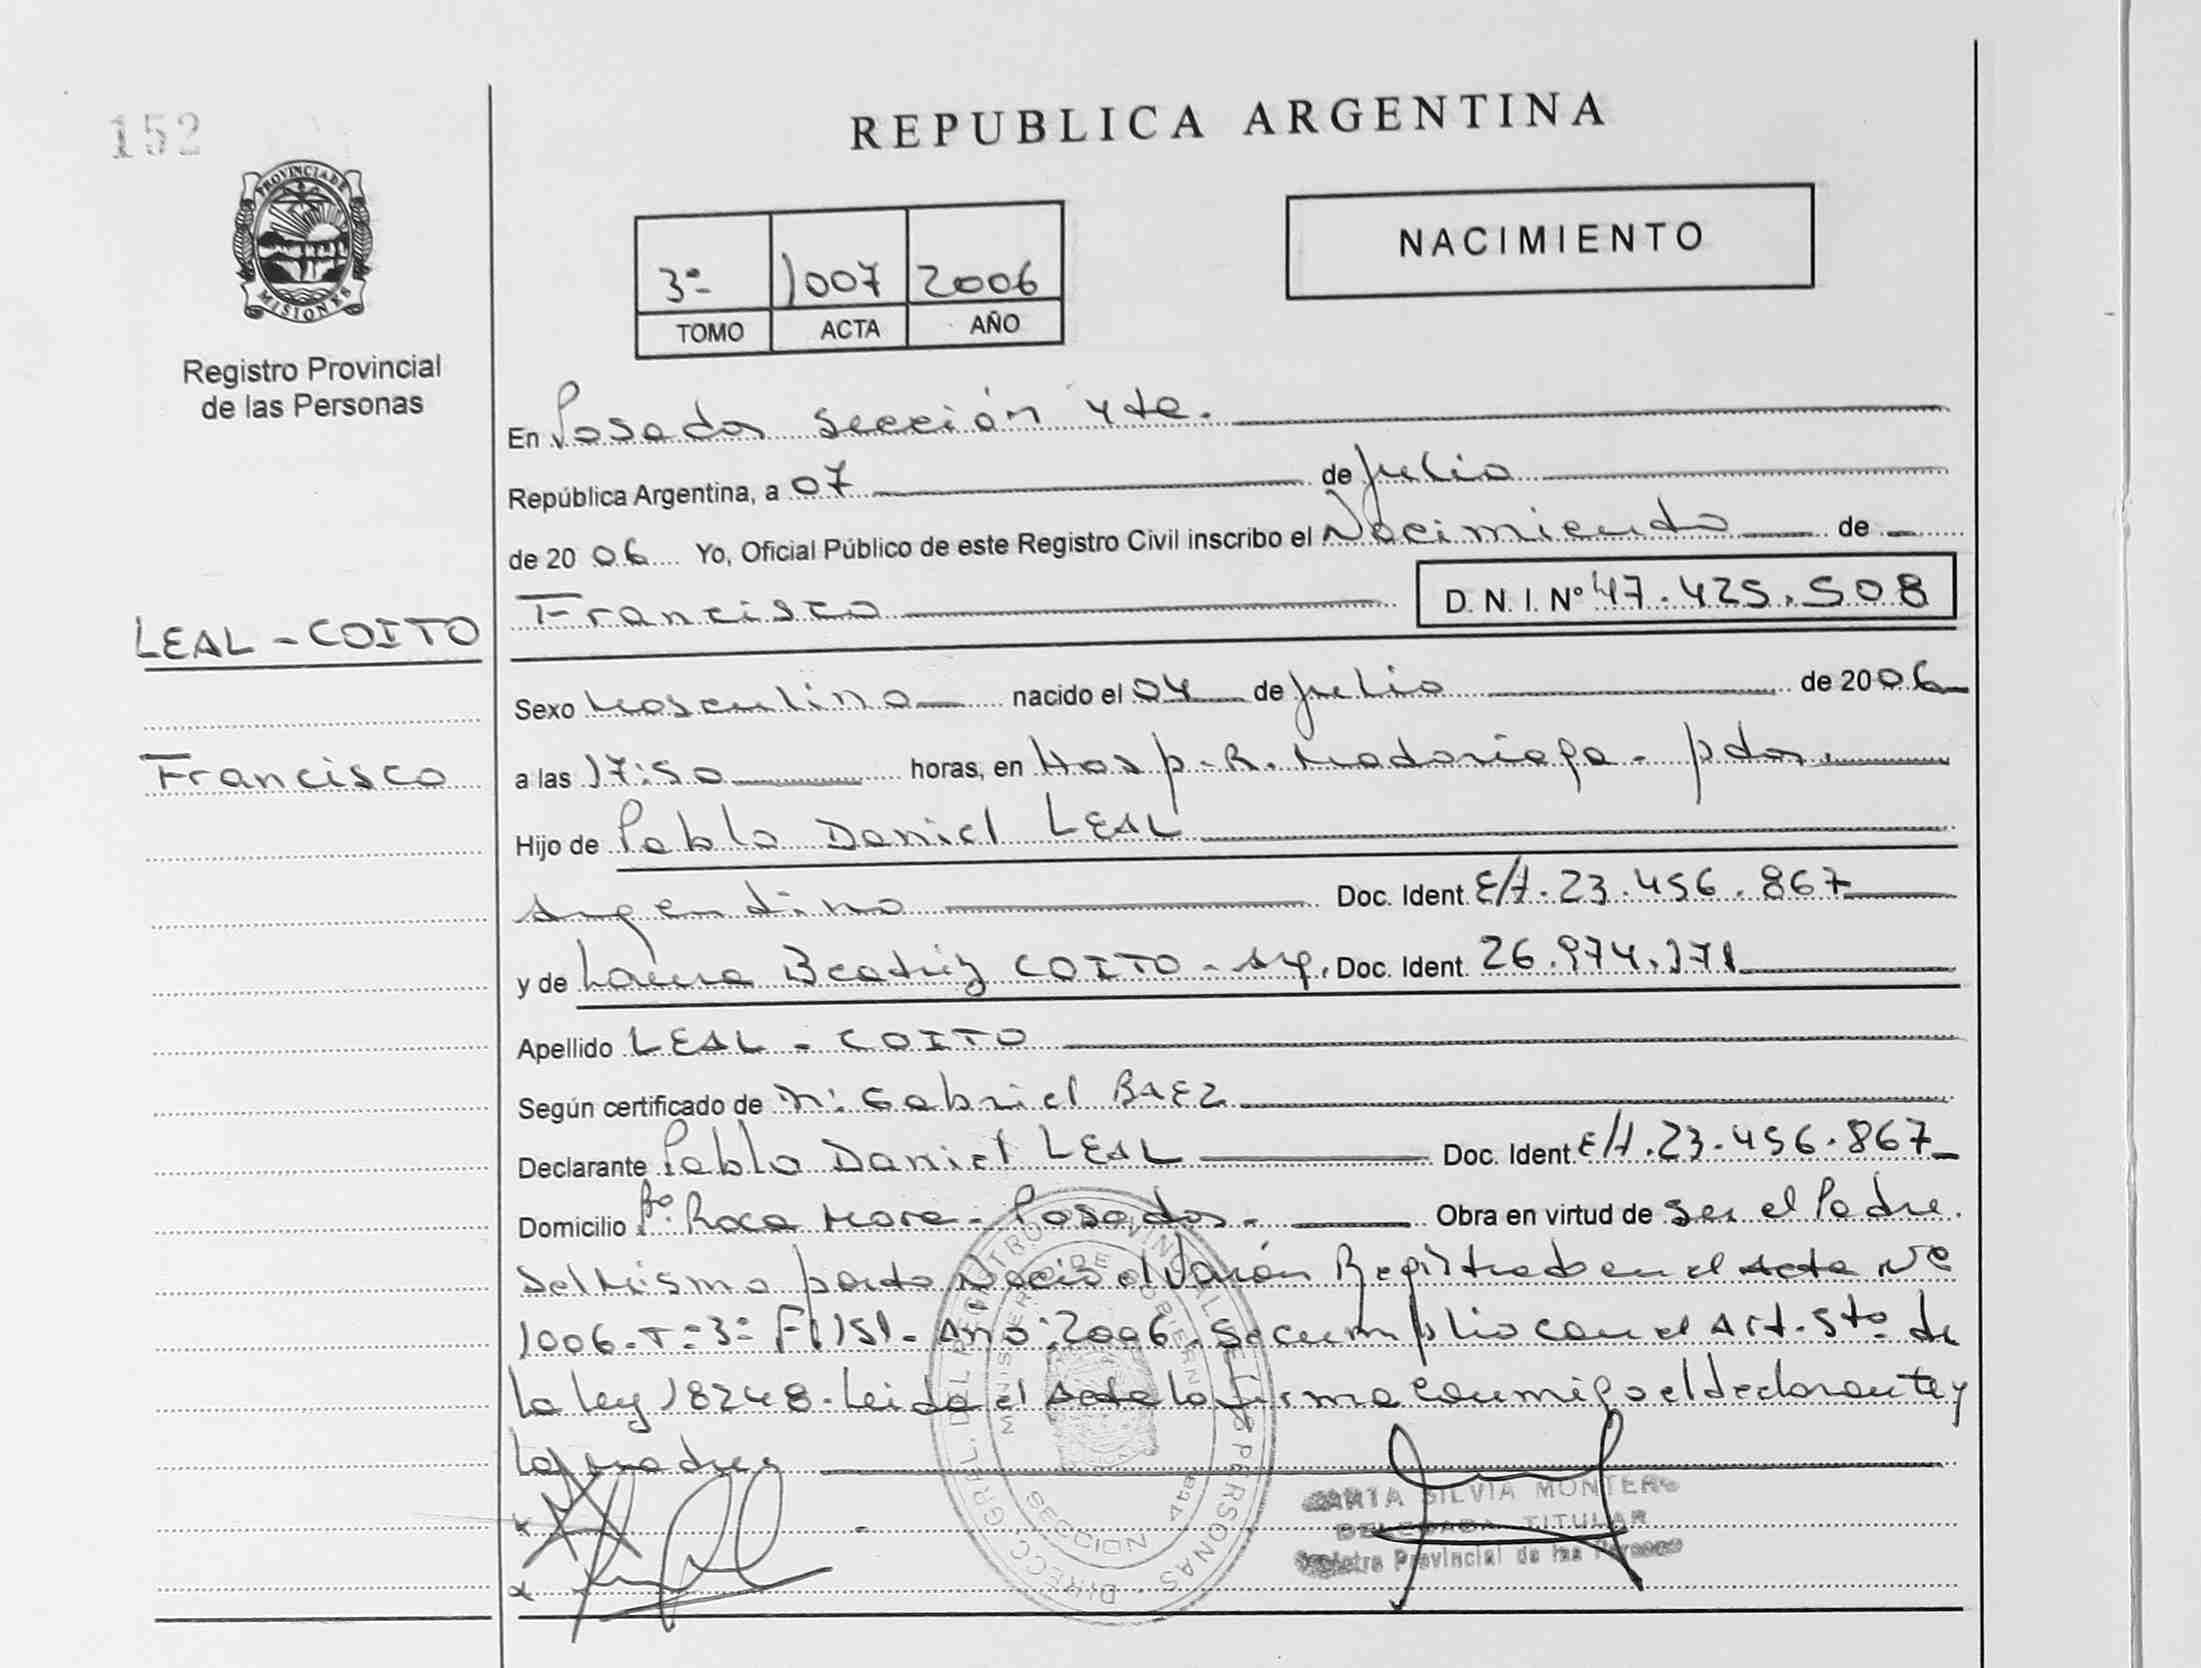 152
REPUBLICA ARGENTINA
PROVINCIA DE
MISIONES
Registro Provincial
de las Personas
3º 1007 2006
TOMO ACTA AÑO
NACIMIENTO
En Posadas sección 4ta.
República Argentina, a 07 de julio
de 2006 Yo, Oficial Público de este Registro Civil inscribo el Nacimiento de
Francisco D. N. I. Nº 47.425.508
LEAL - COITO
Francisco
Sexo Masculino nacido el 04 de julio de 2006
a las 17:50 horas, en Hosp. R. Madariaga - pdas.
Hijo de Pablo Daniel LEAL
Argentino Doc. Ident. E/T. 23.456.867
y de Laura Beatriz COITO - Arg. Doc. Ident. 26.974.171
Apellido LEAL - COITO
Según certificado de Gabriel BAEZ
Declarante Pablo Daniel LEAL Doc. Ident. E/T. 23.456.867
Domicilio Bº. Roca Posadas - Obra en virtud de ser el Padre.
Del Mismo parto Nació el Varón Registrado en el Acta Nº
1006 - Tº 3º Fº 151 - Año: 2006 - Se cumplio con el Art. 5to de
la Ley 18248. Leida el Acta la firma conmigo el declarante y
la madre
DIRECC. GRAL. DEL REGISTRO PROVINCIAL DE LAS PERSONAS
MINISTERIO DE GOBIERNO
SILVIA MONTERO
DELEGADA TITULAR
Registro Provincial de las Personas